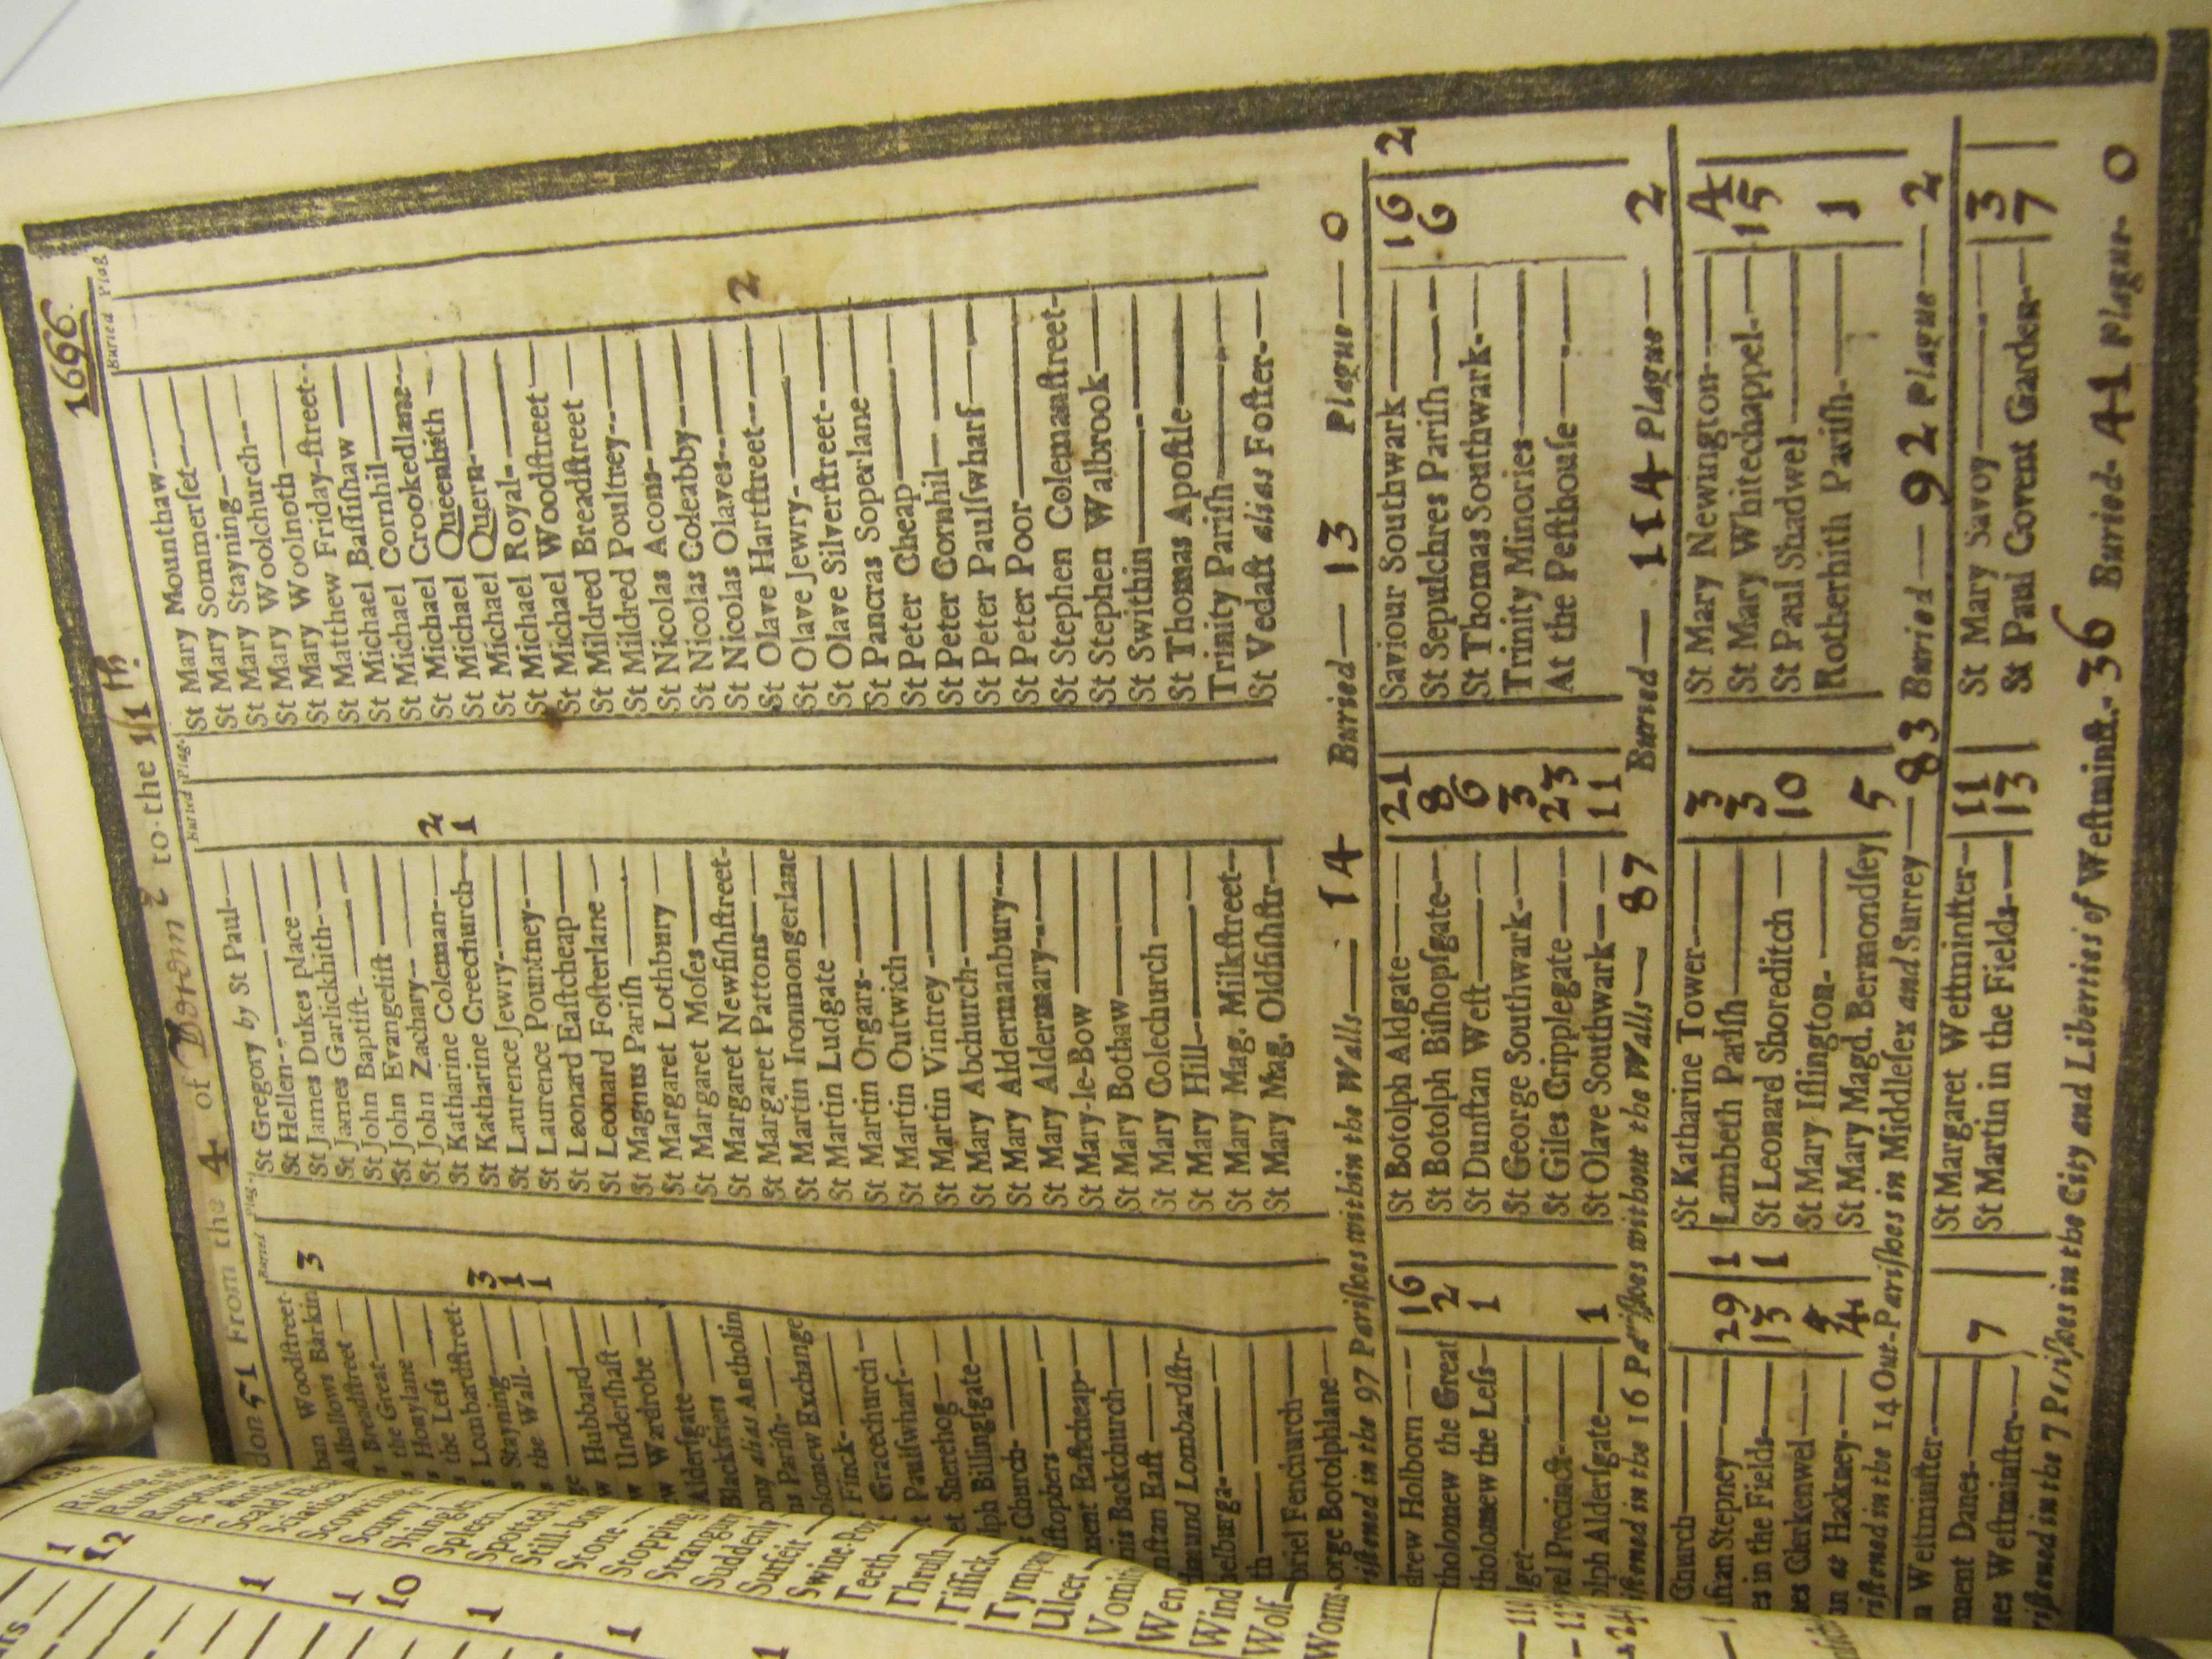 don 51 From the 4 of Decemr to the 11th. 1666.
Buried Plag. Buried Plag. Buried Plag
Woodſtreet- 3
Alhallows Barkin
Breadſtreet
the Great
Honylane
the Leſs
Lombardſtreet- 3
Stayning 1
the Wall- 1
Hubbard
Underſhaft
Wardrobe
Alderſgate
Blackfriers
alias Antholin
Pariſh-
Exchange
Finck-
Gracechurch
Paulſwharf-
Sherehog
Billingſgate
Church-
Eaſtcheap
Backchurch
Eaſt
Lombardſtr-
Fenchurch
Botolphlane
St Gregory by St Paul
St Hellen
St James Dukes place
St James Garlickhith
St John Baptiſt
St John Evangeliſt
St John Zachary
St Katharine Coleman 2
St Katharine Creechurch 1
St Laurence Jewry
St Laurence Pountney
St Leonard Eaſtcheap
St Leonard Foſterlane
St Magnus Pariſh
St Margaret Lothbury
St Margaret Moſes
St Margaret Newfiſhſtreet
St Margaret Pattons
St Martin Ironmongerlane
St Martin Ludgate
St Martin Orgars
St Martin Outwich
St Martin Vintrey
St Mary Abchurch
St Mary Aldermanbury
St Mary Aldermary
St Mary-le-Bow
St Mary Bothaw
St Mary Colechurch
St Mary Hill
St Mary Mag. Milkſtreet
St Mary Mag. Oldfiſhſtr
St Mary Mounthaw
St Mary Sommerſet
St Mary Stayning
St Mary Woolchurch
St Mary Woolnoth
St Matthew Friday-ſtreet
St Michael Baſſiſhaw
St Michael Cornhil
St Michael Crookedlane
St Michael Queenhith
St Michael Quern
St Michael Royal
St Michael Woodſtreet
St Mildred Breadſtreet
St Mildred Poultrey
St Nicolas Acons
St Nicolas Coleabby
St Nicolas Olaves 2
St Olave Hartſtreet
St Olave Jewry
St Olave Silverſtreet
St Pancras Soperlane
St Peter Cheap
St Peter Cornhil
St Peter Paulſwharf
St Peter Poor
St Stephen Colemanſtreet
St Stephen Walbrook
St Swithin
St Thomas Apoſtle
Trinity Pariſh
St Vedaſt alias Foſter
iſtened in the 97 Pariſhes within the Walls— 14 Buried— 13 Plague— 0
drew Holborn 16
tholomew the Great 2
tholomew the Leſs 1
Precinct
Alderſgate 1
St Botolph Aldgate 21
St Botolph Biſhopſgate 8
St Dunſtan Weſt 6
St George Southwark 3
St Giles Cripplegate 23
St Olave Southwark 11
Saviour Southwark 16 2
St Sepulchres Pariſh 6
St Thomas Southwark
Trinity Minories
At the Peſthouſe
iſtened in the 16 Pariſhes without the Walls— 87 Buried— 114 Plague— 2
Church
Stepney 29 1
in the Fields 13 1
Clerkenwel
at Hackney 4
St Katharine Tower 3
Lambeth Pariſh 3
St Leonard Shoreditch 10
St Mary Iſlington
St Mary Magd. Bermondſey 5
St Mary Newington 4
St Mary Whitechappel 15
St Paul Shadwel
Rotherhith Pariſh 1
riſtened in the 14 Out-Pariſhes in Middleſex and Surrey— 83 Buried— 92 Plague— 2
Weſtminſter
Danes 7
Weſtminſter
St Margaret Weſtminſter 11
St Martin in the Fields 13
St Mary Savoy 3
St Paul Covent Garden 7
riſtened in the 7 Pariſhes in the City and Liberties of Weſtminſt.- 36 Buried- 41 Plague- 0
1
12
1
1
10
1
1
1
Scald
Sciatica
Scowring
Scurvy
Shingles
Spleen
Spotted
Still-born
Stone
Stopping
Strangury
Suddenly
Surfeit
Swine-Pox
Teeth
Thruſh
Tiſſick
Tympany
Ulcer
Wen
Wind
Wolf
Worms